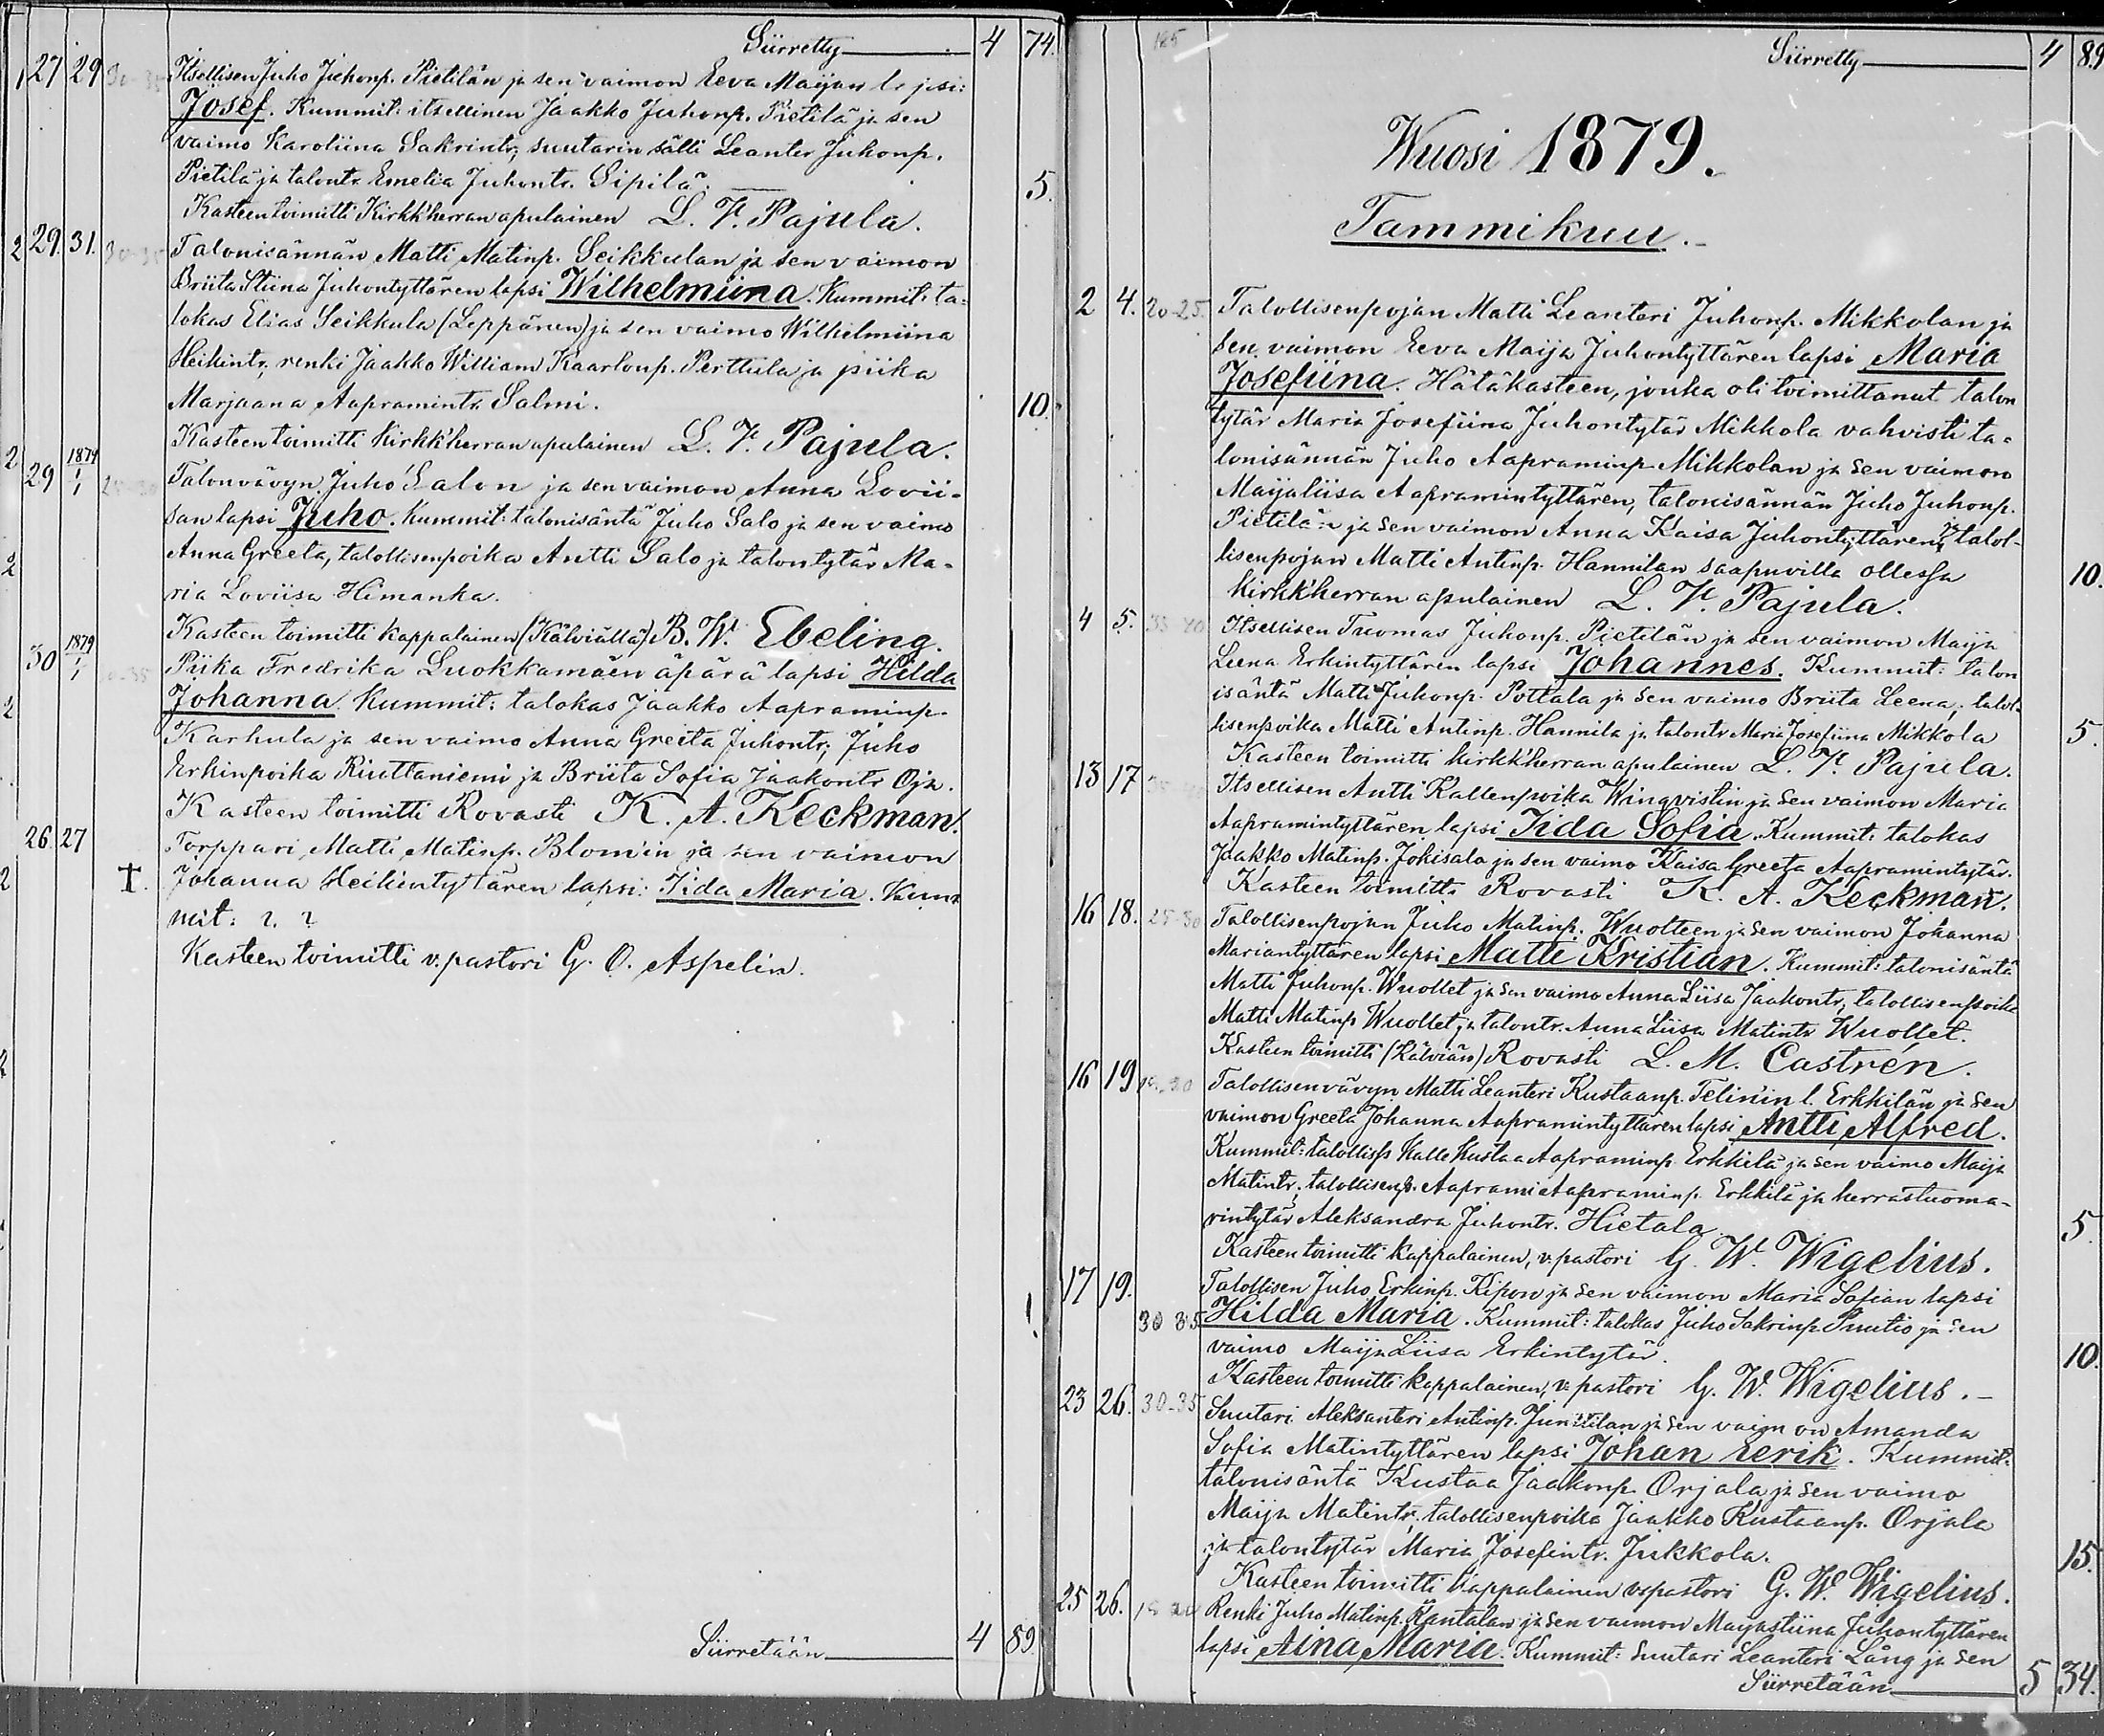 Siirretty 4 74.
27 29 30-35 Itsellisen Juho Juhonp. Pietilän ja sen vaimon Eeva Maijan l. psi:
Josef. Kummit: itsellinen Jaakko Juhonp. Pietilä ja sen
vaimo Karoliina Sakrintr; suutarin sälli Leanter Juhonp.
Pietilä ja talontr. Emelia Juhontr. Sipilä. 5.
Kasteen toimitti Kirkk'herran apulainen L. V. Pajula.
29. 31. 30-35 Talonisännän Matti Matinp. Seikkulan ja sen vaimon
Briita Stiina Juhontyttären lapsi Wilhelmiina. Kummit: ta-
lokas Elias Seikkula (Leppänen) ja sen vaimo Wilhelmiina
Heikintr; renki Jaakko William Kaarlonp. Perttula ja piika
Marjaana Aapramintr. Salmi. 10.
Kasteen toimitti Kirkk'herran apulainen L. V. Pajula.
29 1879 1/1 Talonvävyn Juho Salon ja sen vaimon Anna Lovii-
san lapsi Juho. Kummit: talonisäntä Juho Salo ja sen vaimo
Anna Greeta, talollisenpoika Antti Salo ja talontytär Ma-
ria Loviisa Himanka.
Kasteen toimitti kappalainen (Kälviällä) B. W. Ebeling.
30 1879 1/1 Piika Fredrika Luokkamäen äpärä lapsi Hilda
Johanna. Kummit: talokas Jaakko Aapraminp.
Karhula ja sen vaimo Anna Greeta Juhontr; Juho
Erkinpoika Riuttaniemi ja Briita Sofia Jaakontr Oja.
Kasteen toimitti Rovasti K. A. Keckman.
26 27 Torppari Matti Matinp. Blom'in ja sen vaimon
†. Johanna Heikintyttären lapsi: Iida Maria. Kum-
mit: ? ?
Kasteen toimitti v. pastori G. O. Aspelin.
Siirretään 4 89
185 Siirretty 4 89
Wuosi 1879.
Tammikuu.
2 4. 20-25. Talollisenpojan Matti Leanteri Juhonp. Mikkolan ja
sen vaimon Eeva Maija Juhontyttären lapsi Maria
Josefiina. Hätäkasteen, jonka oli toimittanut talon
tytär Maria Josefiina Juhontytär Mikkola vahvisti ta-
lonisännän Juho Aapraminp Mikkolan ja sen vaimon
Maijaliisa Aapramintyttären, talonisännän Juho Juhonp.
Pietilän ja sen vaimon Anna Kaisa Juhontyttären, ja talol-
lisenpojan Matti Antinp. Hannilan saapuvilla ollessa 10.
Kirkk'herran apulainen L. V. Pajula.
4 5. 35 40 Itsellisen Tuomas Juhonp. Pietilän ja sen vaimon Maija
Leena Erkintyttären lapsi Johannes. Kummit: talon
isäntä Matti Juhonp. Pottala ja sen vaimo Briita Leena; talol-
lisenpoika Matti Antinp. Hannila ja talontr Maria Josefiina Mikkola 5.
Kasteen toimitti kirkk'herran apulainen L. V. Pajula.
13 17 Itsellisen Antti Kallenpoika Winqvistin ja sen vaimon Maria
Aapramintyttären lapsi Iida Sofia. Kummit: talokas
Jaakko Matinp. Jokisalo ja sen vaimo Kaisa Greeta Aapramintytär.
Kasteen toimitti Rovasti K. A. Keckman.
16 18. 25-30 Talollisenpojan Juho Matinp. Wuolteen ja sen vaimon Johanna
Mariantyttären lapsi Matti Kristian. Kummit: talonisäntä
Matti Juhonp. Wuollet ja sen vaimo Anna Liisa Jaakontr; talollisenpoika
Matti Matinp Wuollet ja talontr. Anna Liisa Matintr Wuollet.
Kasteen toimitti (Kälviän) Rovasti L. M. Castrén.
16 19 Talollisenvävyn Matti Leanteri Kustaanp. Telin'in l. Erkkilän ja sen
vaimon Greeta Johanna Aapramintyttären lapsi Antti Alfred.
Kummit: talollisp Kalle Kustaa Aapraminp. Erkkilä ja sen vaimo Maija
Matintr; talollisenp. Aaprami Aapraminp. Erkkilä ja herrastuoma-
rintytär Aleksandra Juhontr. Hietala 5.
Kasteen toimitti kappalainen, v. pastori G. W. Wigelius.
17 19. Talollisen Juho Erkinp. Kipon ja sen vaimon Maria Sofian lapsi
30 35 Hilda Maria. Kummit: talokas Juho Sakrinp. Puutio ja sen
vaimo Maija Liisa Erkintytär. 10.
Kasteen toimitti kappalainen, v. pastori G. W. Wigelius.
23 26. 30-35 Suutari Aleksanteri Antinp. Junttilan ja sen vaimon Amanda
Sofia Matintyttären lapsi Johan Eerik. Kummit:
talonisäntä Kustaa Jaakonp. Orjala ja sen vaimo
Maija Matintr; talollisenpoika Jaakko Kustaanp. Orjala
ja talontytär Maria Josefintr. Jukkola. 15.
Kasteen toimitti kappalainen v. pastori G. W. Wigelius.
25 26. Renki Juho Matinp. Rantalan ja sen vaimon Maijastiina Juhontyttären
lapsi Aina Maria. Kummit: Suutari Leanteri Lång ja sen
Siirretään 5 34.